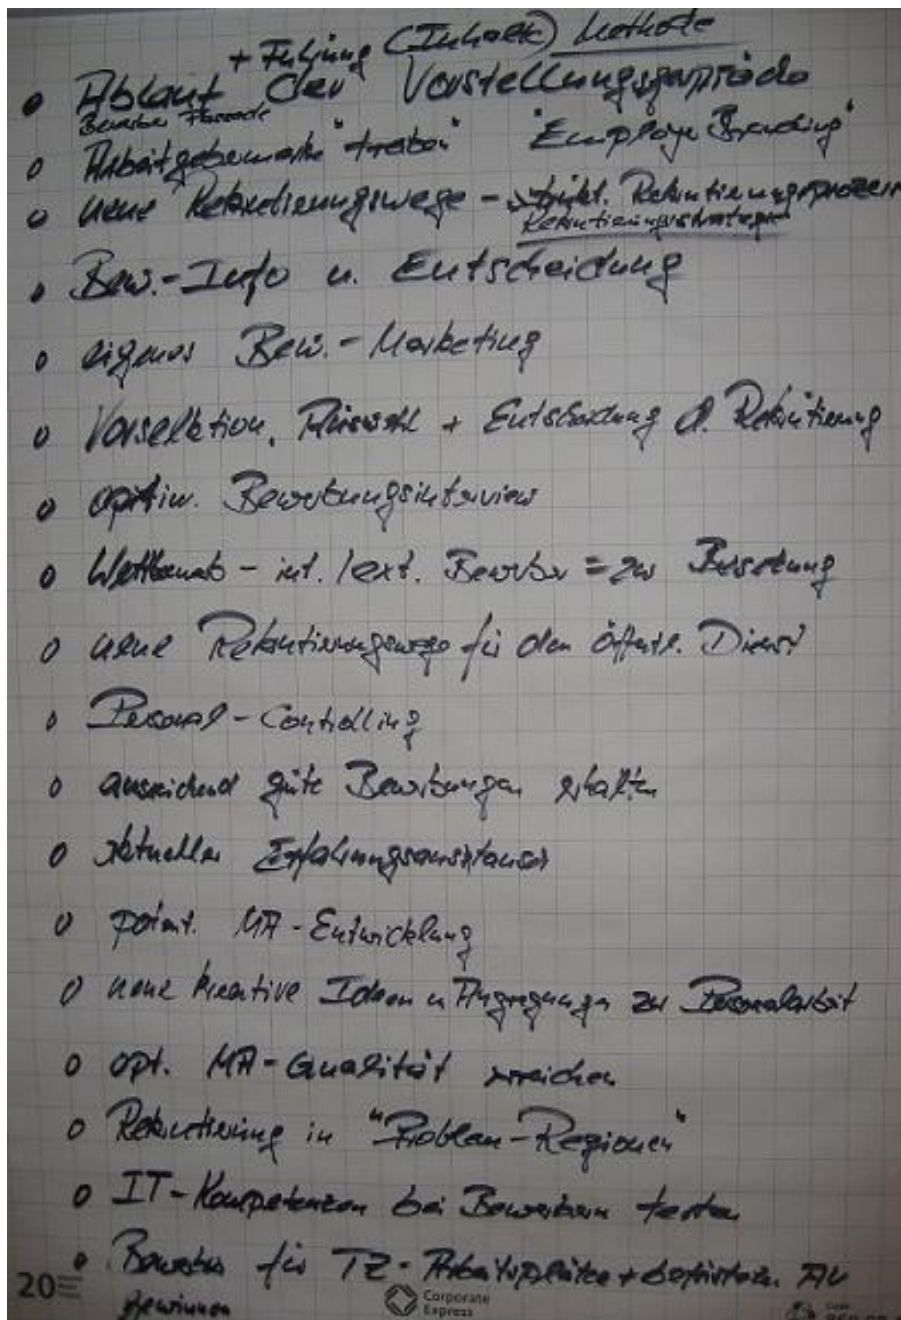 + Führung (Inhalte) Methode
• Ablauf der Vorstellungsgespräche
Bewerber
o Arbeitgebermarke "treiben" "Employe Branding"
o neue Rekrutierungswege - Rekrutierungsprozess
Rekrutierungsstrategie
• Bew.-Info u. Entscheidung
o eigenes Bew.-Marketing
o Vorselektion, Auswahl + Entscheidung d. Rekrutierung
o optim. Bewerbungsinterview
o Wettbewerb - int./ext. Bewerber = zur Besetzung
o neue Rekrutierungswege für den öffentl. Dienst
o Personal-Controlling
o ausreichend gute Bewerbungen erhalten
o aktueller Erfahrungsaustausch
o potent. MA-Entwicklung
o neue kreative Ideen u Anregungen zur Personalarbeit
o opt. MA-Qualität erreichen
o Rekrutierung in "Problem-Regionen"
o IT-Kompetenzen bei Bewerbern testen
• Bewerber für TZ-Arbeitsplätze + befristete. AV
gewinnen
20
Corporate
Express